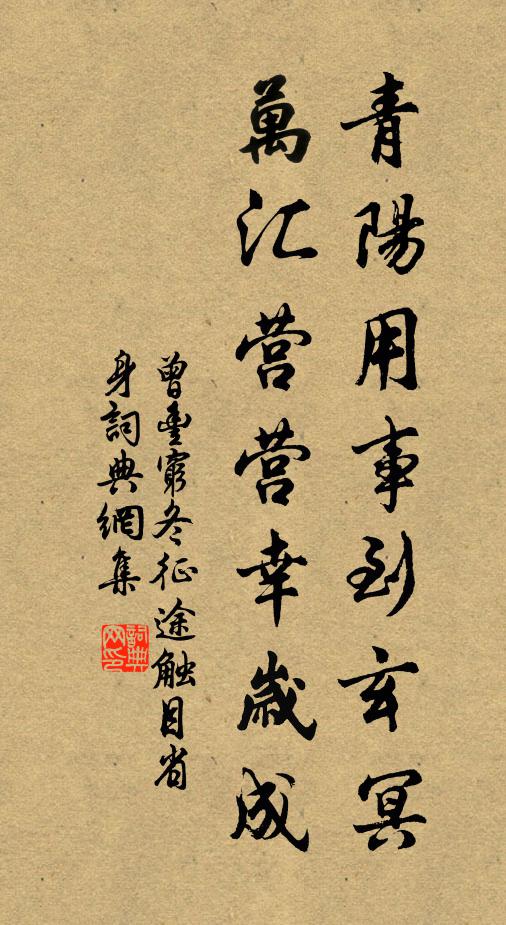 青陽用事到玄冥
萬汇营营幸歲成
曾豐窮冬征途触目省
身詞典網集
詞典网印